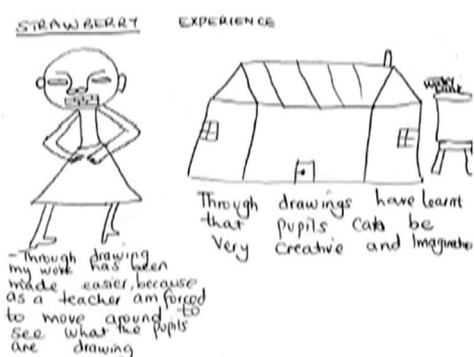 STRAWBERRY EXPERIENCE
water
tank
Through drawings have learnt
that pupils can be
Very Creative and Imaginative
-Through drawing
my work has been
made easier, because
as a teacher am forced
to move around to
see what the pupils
are drawing